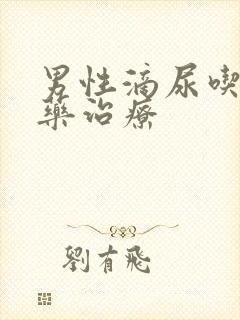 男性滴尿喫
藥治療
劉有飛